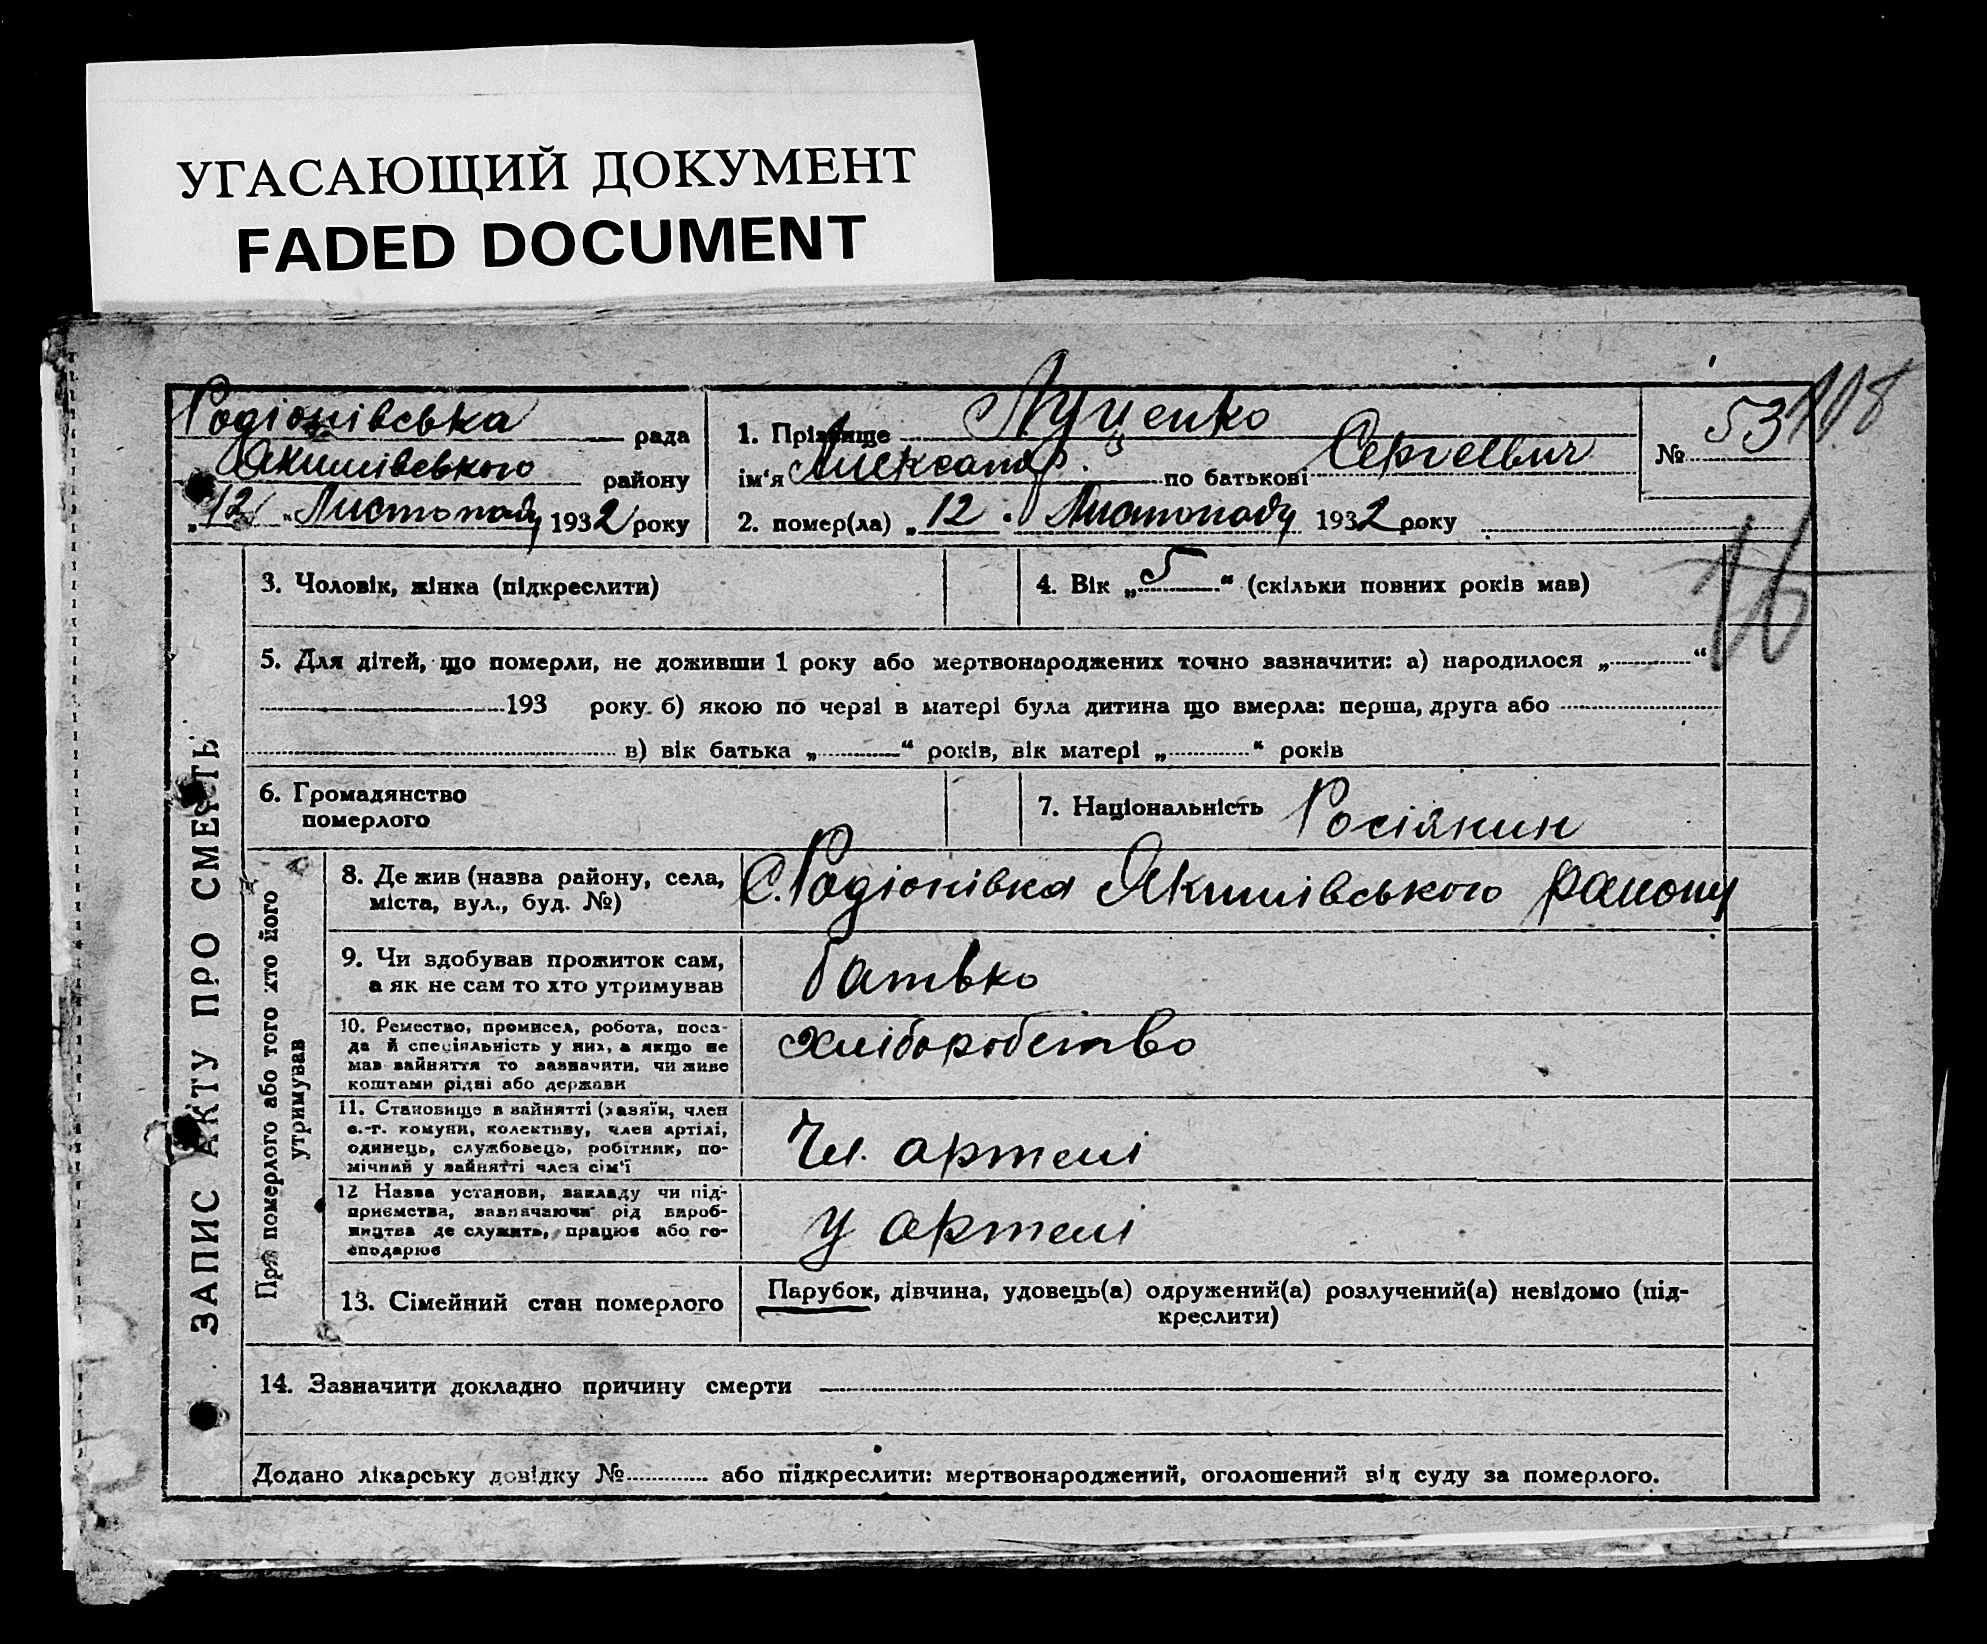 УГАСАЮЩИЙ ДОКУМЕНТ
FADED DOCUMENT
Родіонівська рада
Якимівського району
„12“ Листопаду 1932 року
1. Прізвище Луценко
ім'я Александр. по батькові Сергеевич
2. помер(ла) „12“ Листопаду 1932 року
№ 53
108
16
ЗАПИС АКТУ ПРО СМЕРТЬ
3. Чоловік, жінка (підкреслити)
4. Вік „5“ (скільки повних років мав)
5. Для дітей, що померли, не доживши 1 року або мертвонароджених точно зазначити: а) народилося „ “
193 року б) якою по черзі в матері була дитина що вмерла: перша, друга або
в) вік батька „ “ років, вік матері „ “ років
6. Громадянство
померлого
7. Національність Росіянин
Пря померлого або того хто його
утримував
8. Де жив (назва району, села,
міста, вул., буд. №)
С. Родіонівка Якимівського району
9. Чи здобував прожиток сам,
а як не сам то хто утримував
батько
10. Ремество, промисел, робота, поса-
да й спеціяльність у них, а якщо не
мав зайняття то зазначити, чи живе
коштами рідні або держави
хліборобство
11. Становище в зайнятті (хазяїн, член
с.-г. комуни, колективу, член артілі,
одинець, службовець, робітник, по-
мічний у зайнятті член сім'ї
Чл. артелі
12 Назва установи, закладу чи під-
приємства, зазначаючи рід вироб-
ництва де служить, працює або го-
сподарює
у артелі
13. Сімейний стан померлого
Парубок, дівчина, удовець(а) одружений(а) розлучений(а) невідомо (під-
креслити)
14. Зазначити докладно причину смерти
Додано лікарську довідку № або підкреслити: мертвонароджений, оголошений від суду за померлого.